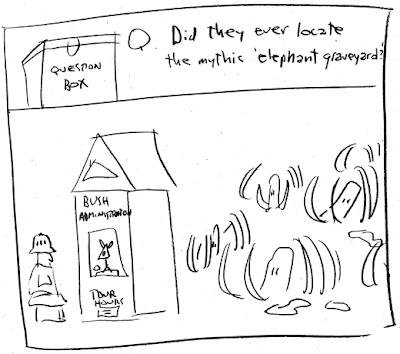 QUESTION
BOX
Q. Did they ever locate
the mythic 'elephant graveyard?'
BUSH
ADMINISTRATION
TOUR
HOURS